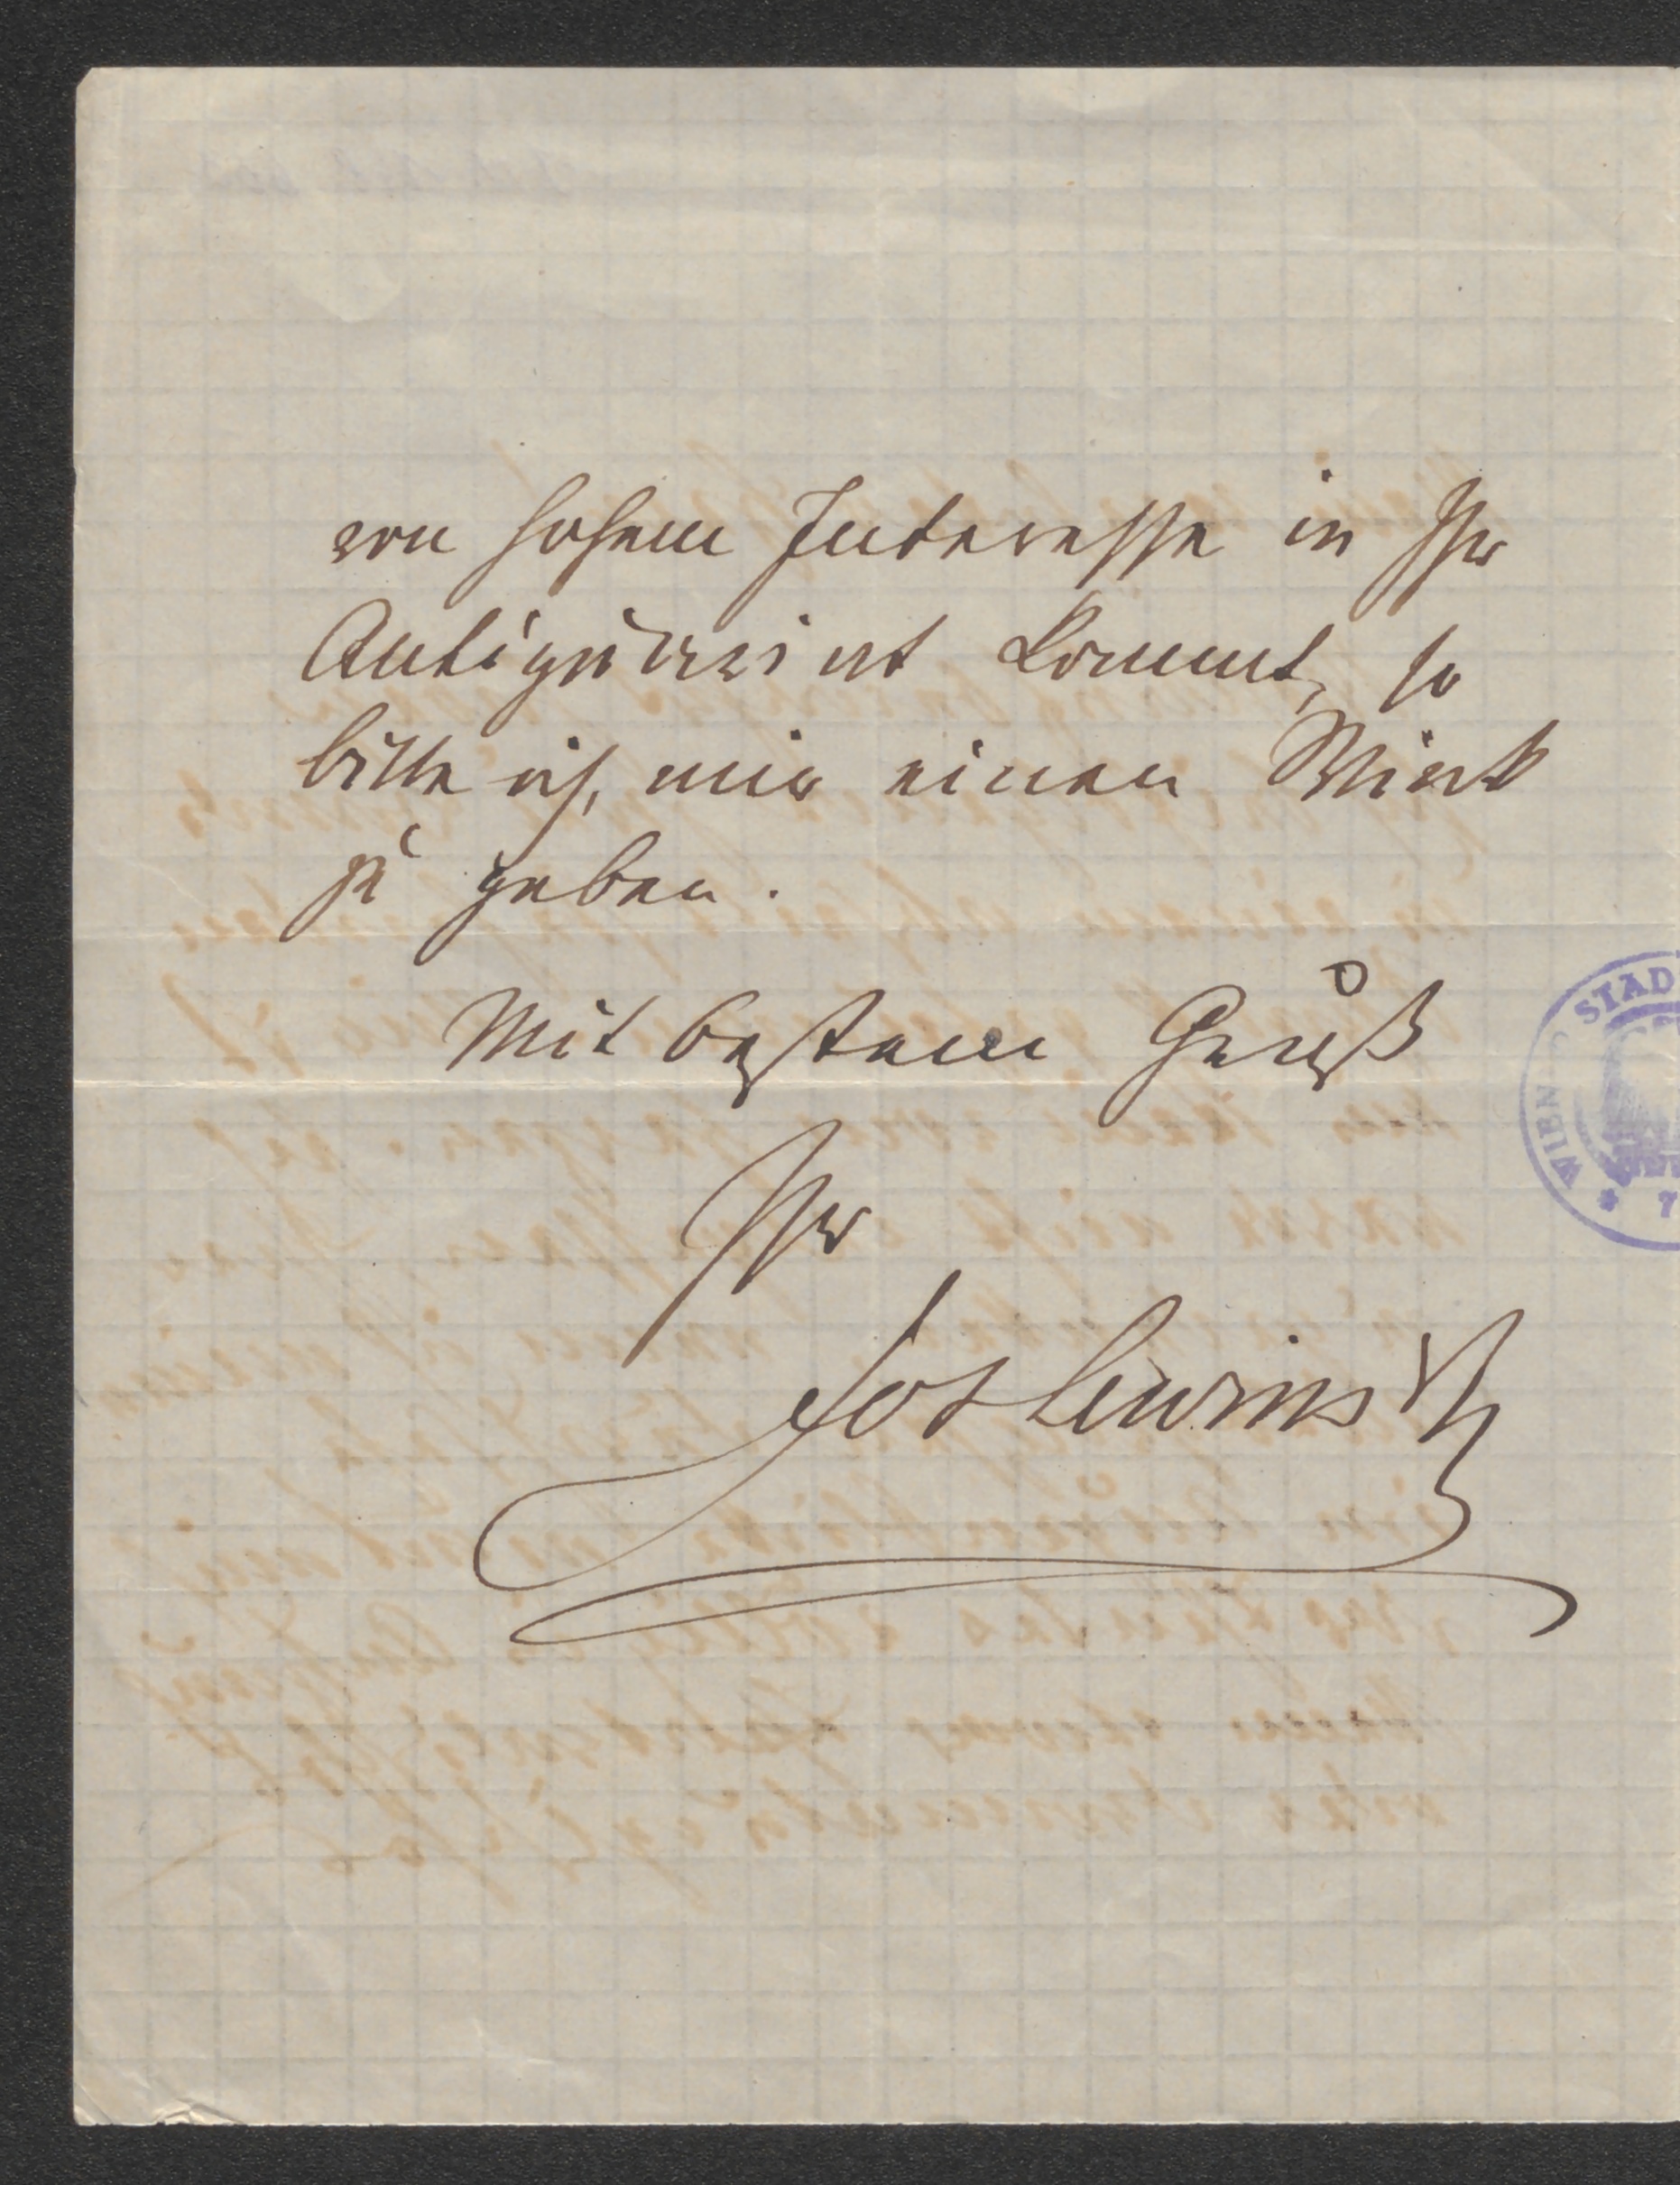 von hohem Interesse in Ihr
Antiquariat kommt, so
bitte ich, mir einen Wink
zu geben.
Mit bestem Gruß
Ihr
Jos Lewinsky
WIEN STAD
7